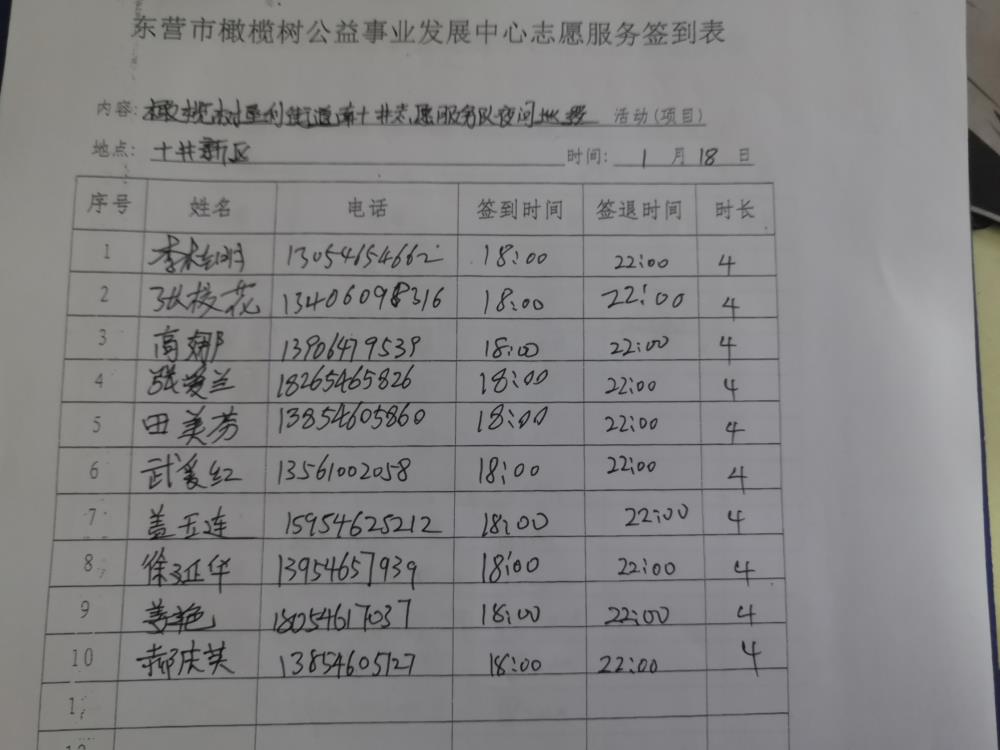 东营市橄榄树公益事业发展中心志愿服务签到表
内容: 橄榄树垦利街道南十井志愿服务队夜间巡逻 活动(项目)
地点: 十井新区 时间: 1 月 18 日
序号 姓名 电话 签到时间 签退时间 时长
1 李 13054654662 18:00 22:00 4
2 张校花 13406098316 18:00 22:00 4
3 高娜 13906479539 18:00 22:00 4
4 张爱兰 18265465826 18:00 22:00 4
5 田美芳 13854605860 18:00 22:00 4
6 武爱红 13561002058 18:00 22:00 4
7 盖玉连 15954625212 18:00 22:00 4
8 徐延华 13954657939 18:00 22:00 4
9 姜艳 18054617037 18:00 22:00 4
10 郝庆英 13854605127 18:00 22:00 4
1